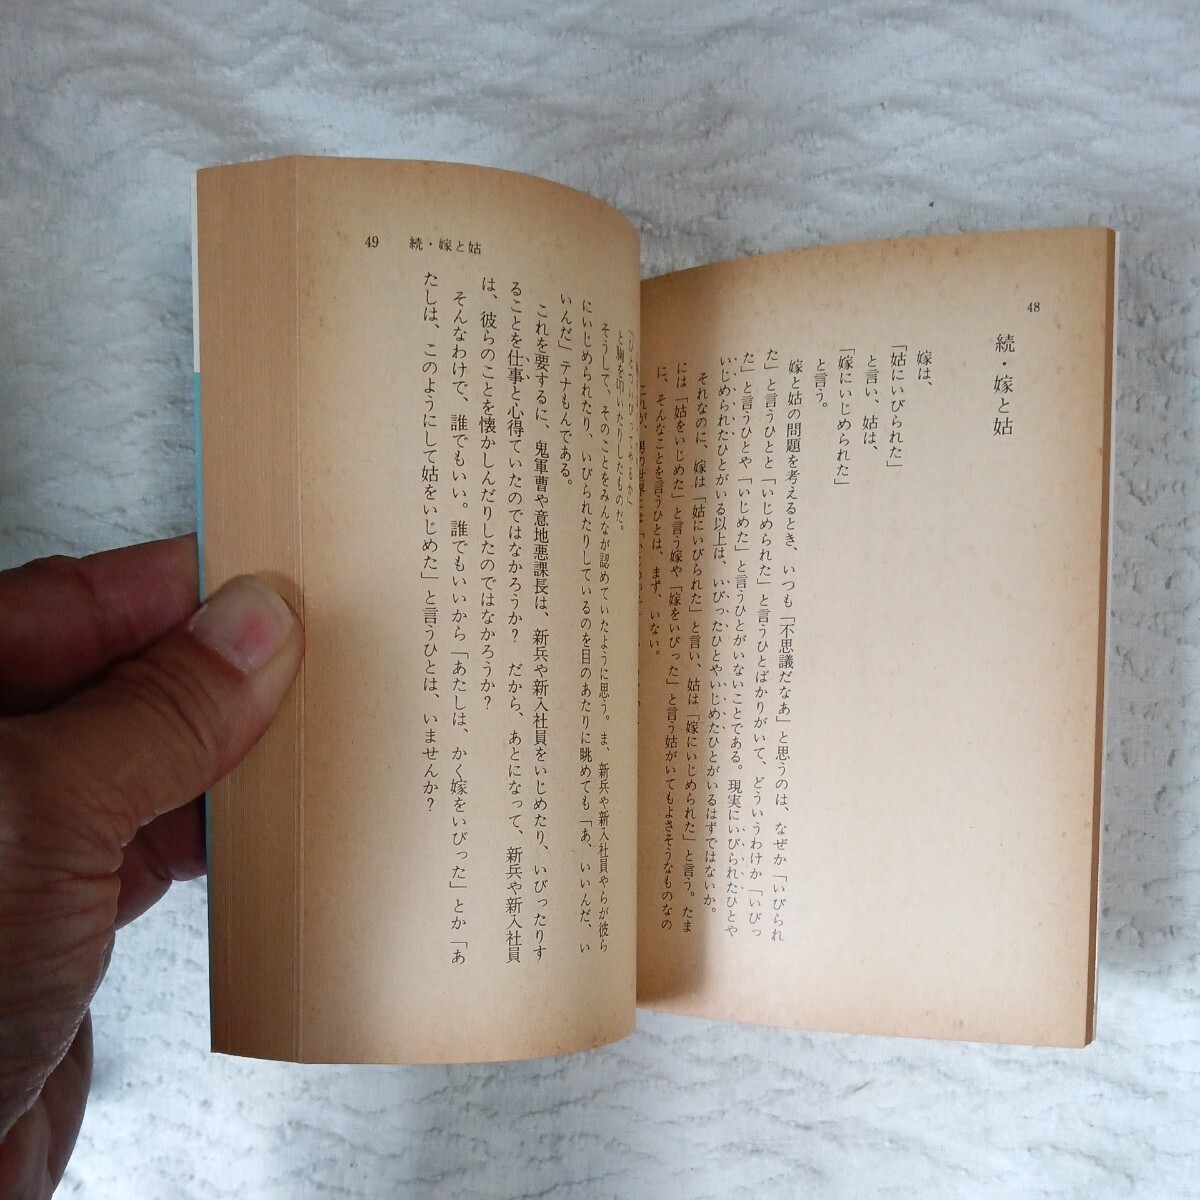 48
続・嫁と姑
嫁は、
「姑にいびられた」
と言い、姑は、
「嫁にいじめられた」
と言う。
嫁と姑の問題を考えるとき、いつも「不思議だなあ」と思うのは、なぜか「いびられ
た」と言うひとと「いじめられた」と言うひとばかりがいて、どういうわけか「いびっ
た」と言うひとや「いじめた」と言うひとがいないことである。現実にいびられたひとや
いじめられたひとがいる以上は、いびったひとやいじめたひとがいるはずではないか。
それなのに、嫁は「姑にいびられた」と言い、姑は「嫁にいじめられた」と言う。たま
には「姑をいじめた」と言う嫁や「嫁をいびった」と言う姑がいてもよさそうなものなの
に、そんなことを言うひとは、まず、いない。
これが、男の世界には
49 続・嫁と姑
と胸を叩いたりしたものだ。
そうして、そのことをみんなが認めていたように思う。ま、新兵や新入社員やらが彼ら
にいじめられたり、いびられたりしているのを目のあたりに眺めても「あ、いいんだ、い
いんだ」テナもんである。
これを要するに、鬼軍曹や意地悪課長は、新兵や新入社員をいじめたり、いびったりす
ることを仕事と心得ていたのではなかろうか？ だから、あとになって、新兵や新入社員
は、彼らのことを懐かしんだりしたのではなかろうか？
そんなわけで、誰でもいい。誰でもいいから「あたしは、かく嫁をいびった」とか「あ
たしは、このようにして姑をいじめた」と言うひとは、いませんか？